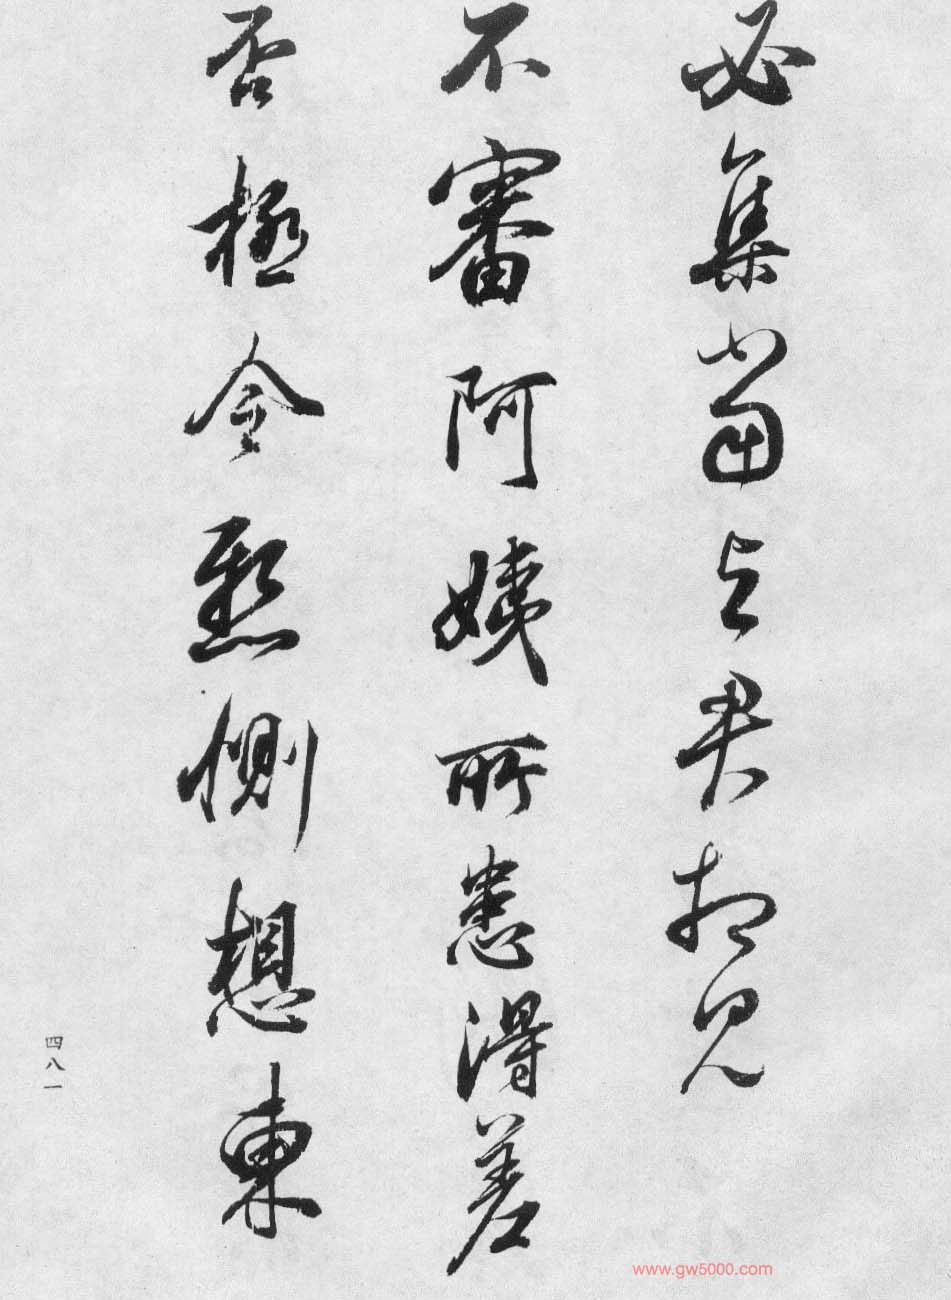 必集當与君相見
不審阿姨所患得差
否極令懸惻想東
四八一
www.gw5000.com